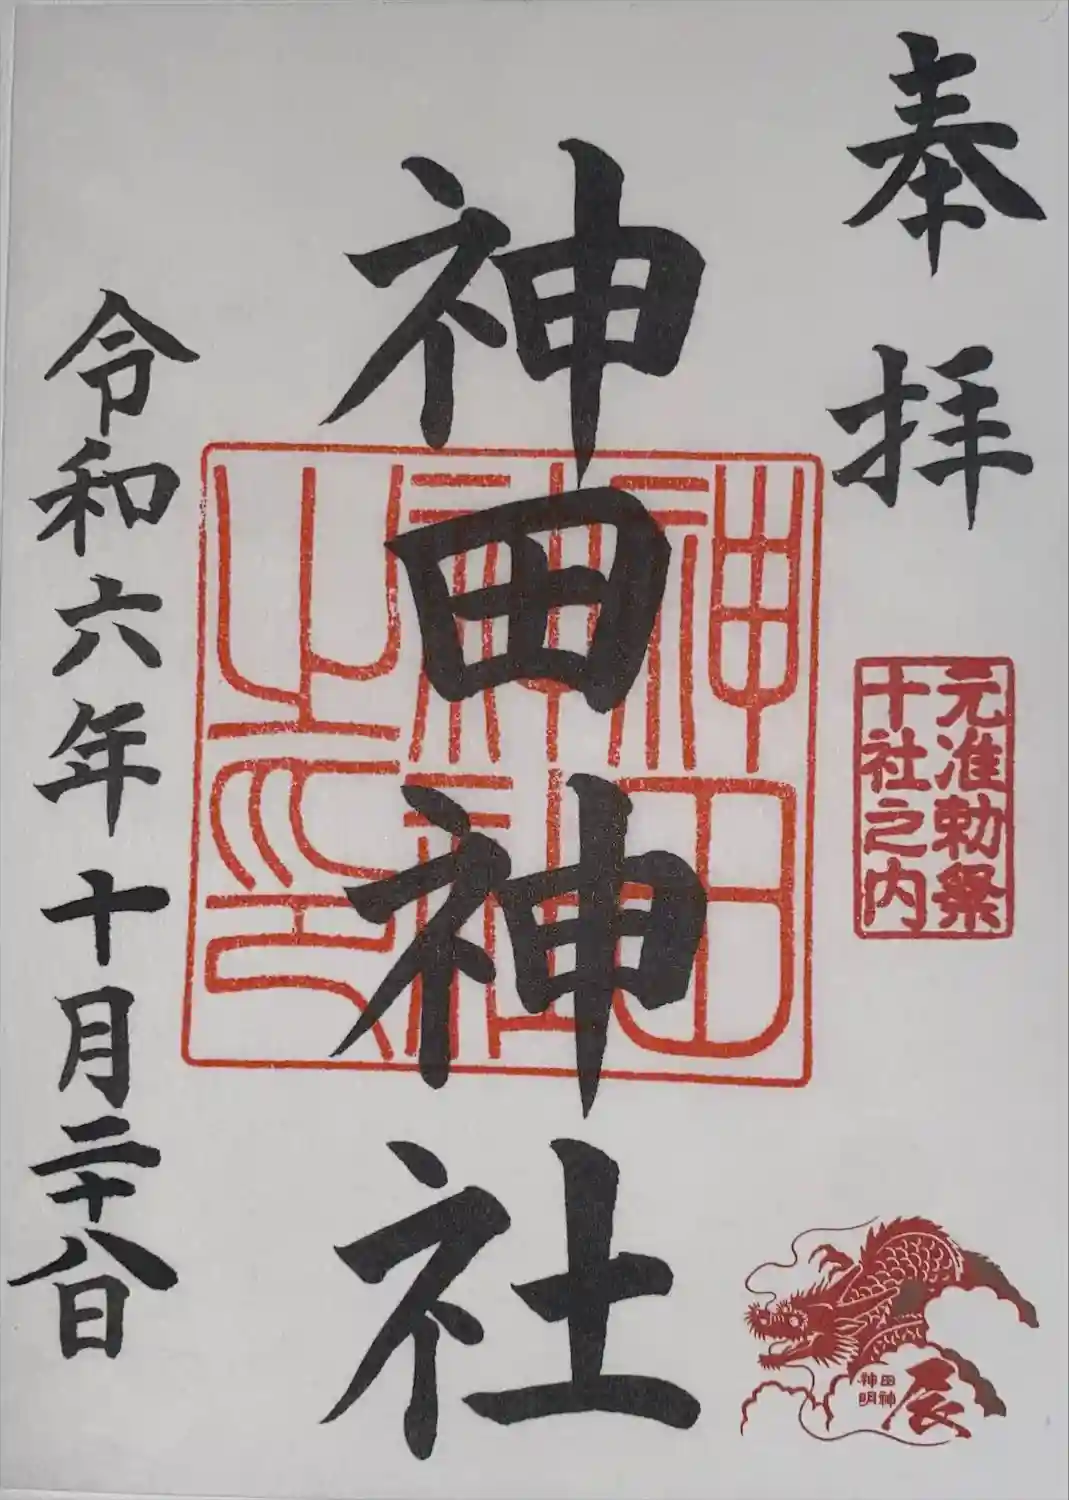 奉拝
元准勅祭
十社之内
神田神社
神田神社之印
令和六年十月二十八日
辰
神田
明神